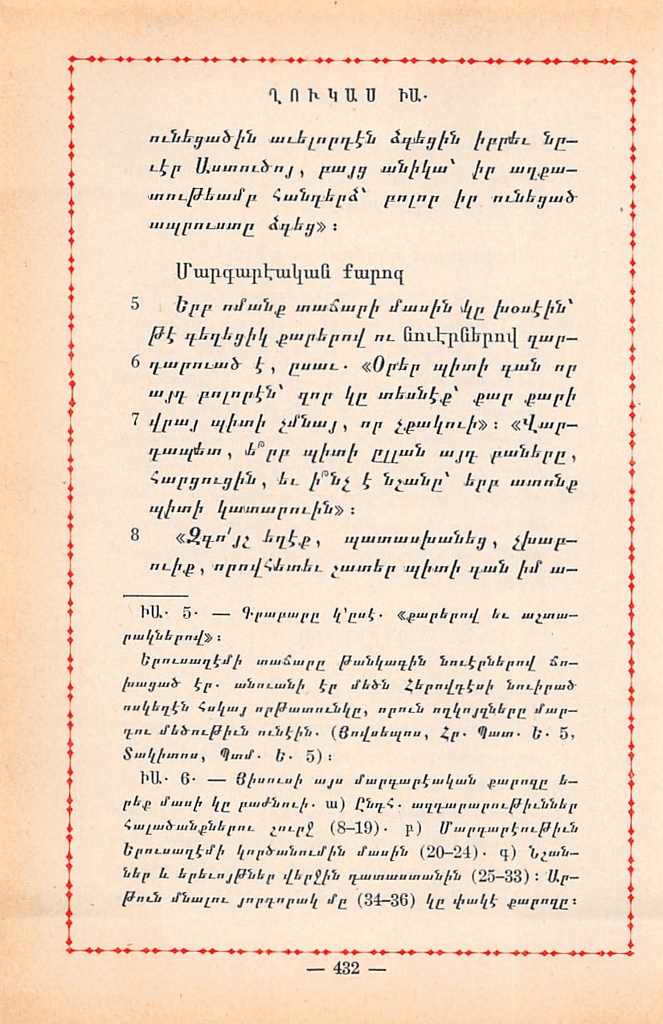 ՂՈՒԿԱՍ ԻԱ.
ունեցածին աւելորդէն ձգեցին իբրեւ նը-
ւէր Աստուծոյ, բայց անիկա՝ իր աղքա-
տութեամբ հանդերձ՝ բոլոր իր ունեցած
ապրուստը ձգեց»:
Մարգարէական քարոզ
5 Երբ ոմանք տաճարի մասին կը խօսէին՝
թէ գեղեցիկ քարերով ու նուէրներով զար-
6 դարուած է, ըսաւ. «Օրեր պիտի գան որ
այդ բոլորէն՝ զոր կը տեսնէք՝ քար քարի
7 վրայ պիտի չմնայ, որ չքակուի»: «Վար-
դապետ, ե՞րբ պիտի ըլլան այդ բաները,
հարցուցին, եւ ի՞նչ է նշանը՝ երբ ատոնք
պիտի կատարուին»:
8 «Զգո՛յշ եղէք, պատասխանեց, չխաբ-
ուիք, որովհետեւ շատեր պիտի գան իմ ա-
ԻԱ. 5. — Գրաբարը կ՚ըսէ. «քարերով եւ աշտա-
րակներով»:
Երուսաղէմի տաճարը թանկագին նուէրներով ճո-
խացած էր. անուանի էր մեծն Հերովդէսի նուիրած
ոսկեղէն հսկայ որթատունկը, որուն ողկոյզները մար-
դու մեծութիւն ունէին. (Յովսեպոս, Հր. Պատ. Ե. 5,
Տակիտոս, Պատմ. Ե. 5):
ԻԱ. 6. — Յիսուսի այս մարգարէական քարոզը ե-
րեք մասի կը բաժնուի. ա) Ընդհ. ազդարարութիւններ
հալածանքներու շուրջ (8–19). բ) Մարգարէութիւն
Երուսաղէմի կործանումին մասին (20–24). գ) Նշան-
ներ և երեւոյթներ վերջին դատաստանին (25–33): Ար-
թուն մնալու յորդորակ մը (34–36) կը փակէ քարոզը:
— 432 —